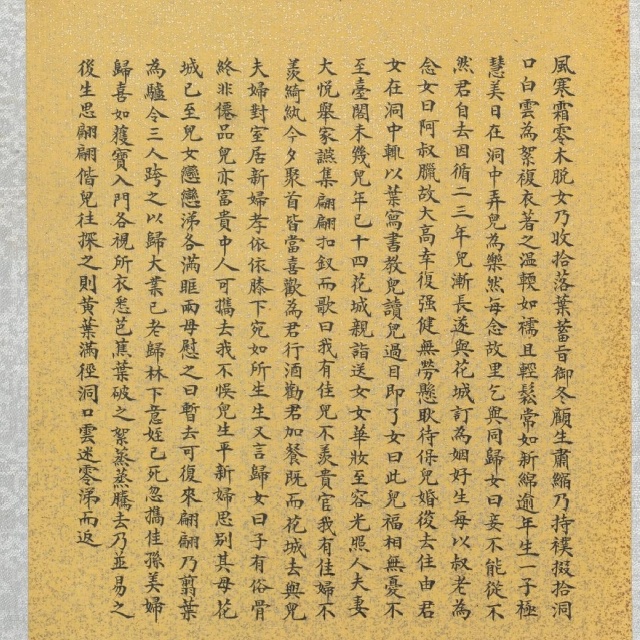 風寒霜零木脫女乃收拾落葉蓄旨御冬顧生肅縮乃持襆掇拾洞
口白雲為絮複衣著之溫輭如襦且輕鬆常如新綿逾年生一子極
慧美日在洞中弄兒為樂然每念故里乞與同歸女曰妾不能從不
然君自去因循二三年兒漸長遂與花城訂為姻好生每以叔老為
念女曰阿叔臘故大高幸復强健無勞懸耿待保兒婚後去住由君
女在洞中輒以葉寫書教兒讀兒過目即了女曰此兒福相無憂不
至臺閣未幾兒年已十四花城親詣送女女華妝至容光照人夫妻
大悅舉家讌集翩翩扣釵而歌曰我有佳兒不羨貴官我有佳婦不
羨綺紈今夕聚首皆當喜歡為君行酒勸君加餐既而花城去與兒
夫婦對室居新婦孝依依膝下宛如所生生又言歸女曰子有俗骨
終非僊品兒亦富貴中人可攜去我不悮兒生平新婦思別其母花
城已至兒女戀戀涕各滿眶兩母慰之曰暫去可復來翩翩乃翦葉
為驢令三人跨之以歸大業已老歸林下意姪已死忽攜佳孫美婦
歸喜如獲寶入門各視所衣悉芭蕉葉破之絮蒸蒸騰去乃並易之
後生思翩翩偕兒往探之則黄葉滿徑洞口雲迷零涕而返